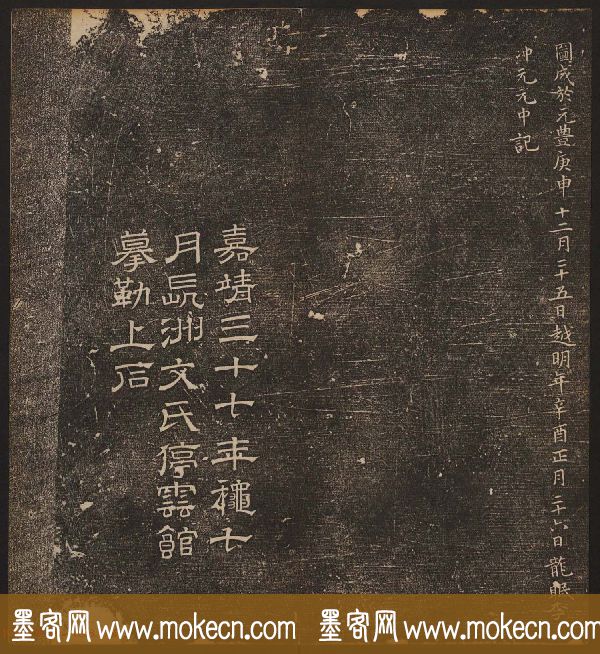 圖成於元豐庚申十二月二十五日越明年辛酉正月二十六日龍眠李
沖元元中記
嘉靖三十七年龝七
月長洲文氏停雲館
摹勒上石
墨客网 www.mokecn.com 墨客网 www.mokecn.com